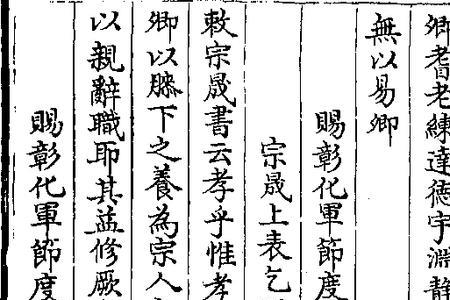 卿耆老練達德宇淵靜
無以易卿
賜彰化軍節度
宗晟上表乞
敕宗晟書云孝乎惟孝
卿以膝下之養為宗人
以親辭職耶其益修厥
賜彰化軍節度